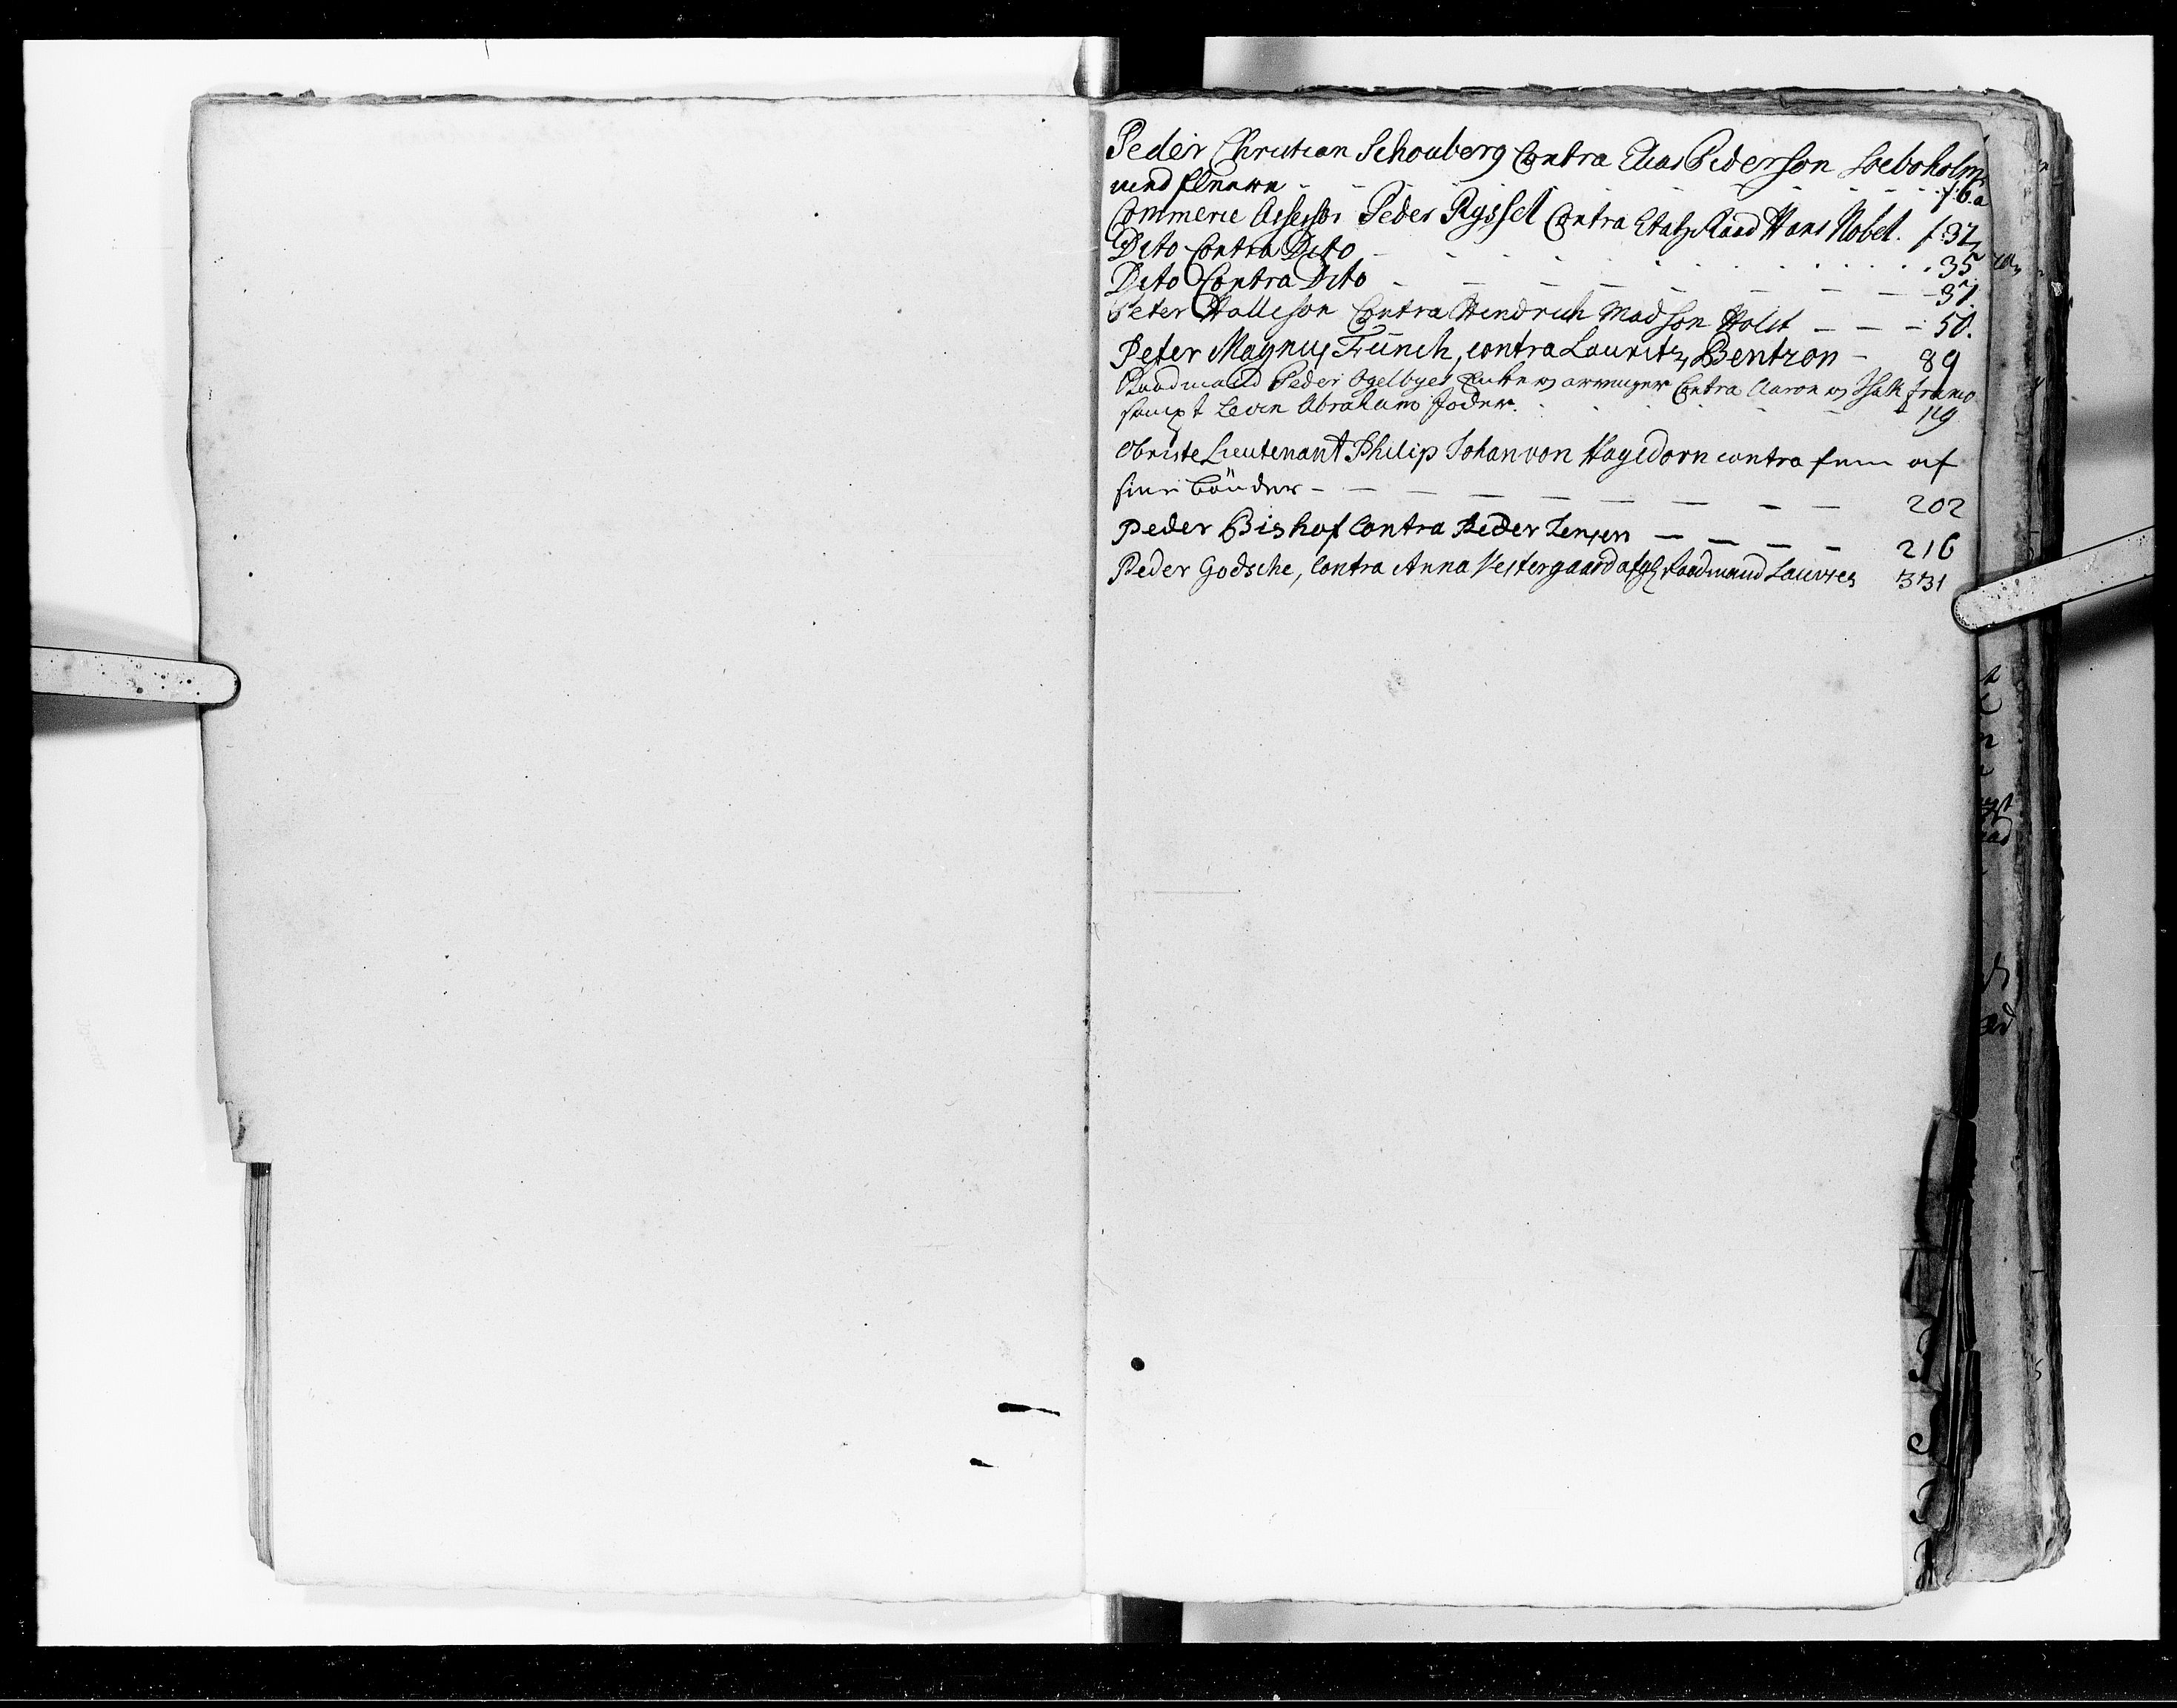 Peder Christian Schouberg Contra Elias Pederson Soeboholm
med fleere - - - - - - - f. 6.a
Commerie Assessor Peder Ryssel Contra Etatz Raad Hans Nobel. f 32
Dito Contra Dito - - - - - - 35
Dito Contra Dito - - - - - - 37.
Peter Halleson Contra Hendrich Madson Holst - - - 50.
Peter Magnus Fünch, contra Lauritz Bentzon - 89
Raadmand Peder Ogelbyes Enke og arvinger Contra Aaron og Isak
sampt Levin Abraham Joder. 119
Obriste Lieutenant Philip Johan von Hagedorn contra fem af
sine bönder - - - - - - - - 202
Peder Bishof Contra Peder Jensen - - - - 216
Peder Godsche, Contra Anna Vestergaard afg: Raadmand Lauvses 331